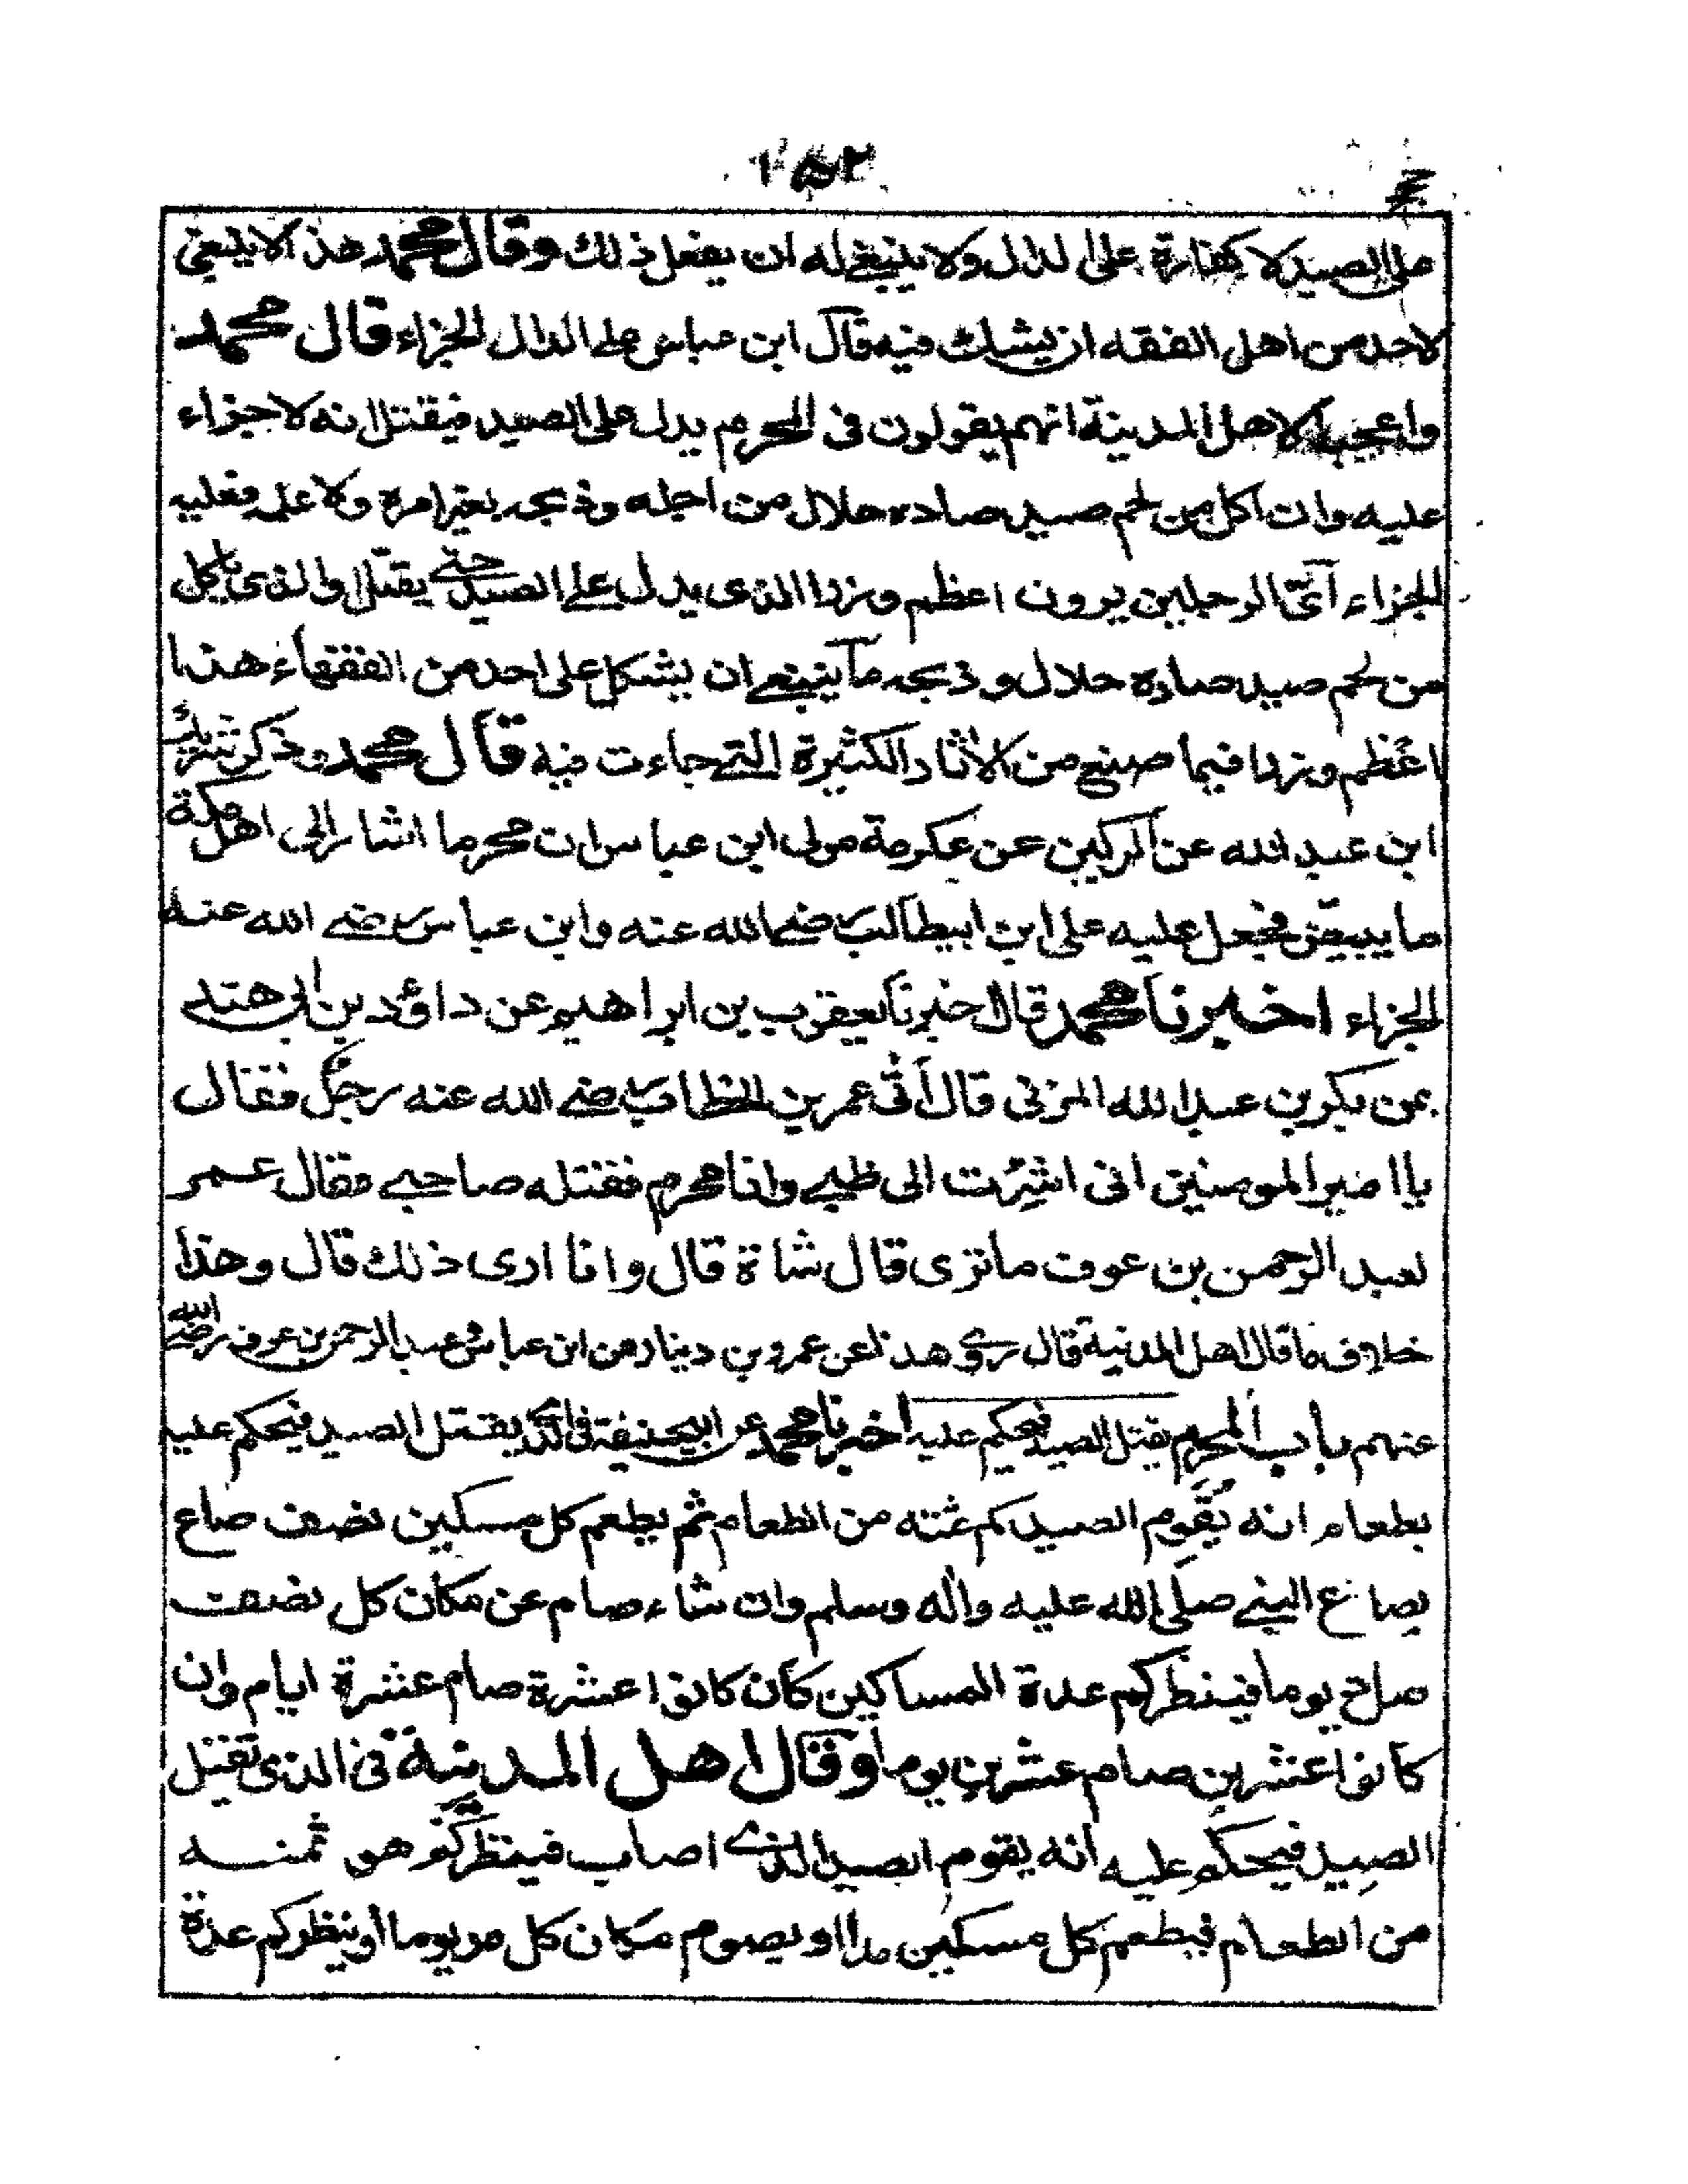 ١٥٢
على الصيد لا كفارة على الدال ولا ينبغي له ان يفعل ذلك وقال محمد هذا لا ينبغي
لاحد من اهل الفقه ان يشك فيه قال ابن عباس على الدال الجزاء قال محمد
واعجبا لاهل المدينة انهم يقولون فى المحرم يدل على الصيد فيقتل انه لا جزاء
عليه وان اكل من لحم صيد صاده حلال من اجله وذبحه بغير امره ولا علمه فعليه
الجزاء آتى الرجلين يرون اعظم وزرا الذى يدل على الصيد حتى يقتل والذى ياكل
من لحم صيد صاده حلال وذبحه ما ينبغي ان يشكل على احد من الفقهاء هذا
اعظم وزرا فيما صنع من الاثار الكثيرة التي جاءت فيه قال محمد وذكر شريك
ابن عبد الله عن الركين عن عكرمة مولى ابن عباس ان محرما اشار الى اهل مكة
فجعل عليه على ابن ابيطالب رضي الله عنه وابن عباس رضي الله عنه
الجزاء اخبرنا محمد قال اخبرنا يعقوب بن ابراهيم عن داؤد بن ابي هند
عن بكر بن عبد الله المزنى قال أتى عمر بن الخطاب رضي الله عنه رجل فقال
يا امير المومنين انى اشرت الى ظبي وانا محرم فقتله صاحبي فقال عمر
لعبد الرحمن بن عوف ما ترى قال شاة قال وانا ارى ذلك قال وهذا
خلاف ما قال اهل المدينة قال روى هذا عن عمرو بن دينار عن ابن عباس وعبد الرحمن بن عوف رضي الله
عنهم باب المحرم يقتل الصيد فيحكم عليه اخبرنا محمد عن ابيحنيفة فى الذى يقتل الصيد فيحكم عليه
بطعام انه يُقَوِم الصيد كم ثمنه من الطعام ثم يطعم كل مسكين نصف صاع
بصاع النبي صلى الله عليه واله وسلم وان شاء صام عن مكان كل نصف
صاع يوما فينظر كم عدة المساكين كان كانوا عشرة صام عشرة ايام وان
كانوا عشرين صام عشرين يوما وقال اهل المدينة فى الذى يقتل
الصيد فيحكم عليه انه يقوم الصيد الذي اصاب فينظر كم هو ثمنه
من الطعام فيطعم كل مسكين مدا او يصوم مكان كل مد يوما أو ينظر كم عدة